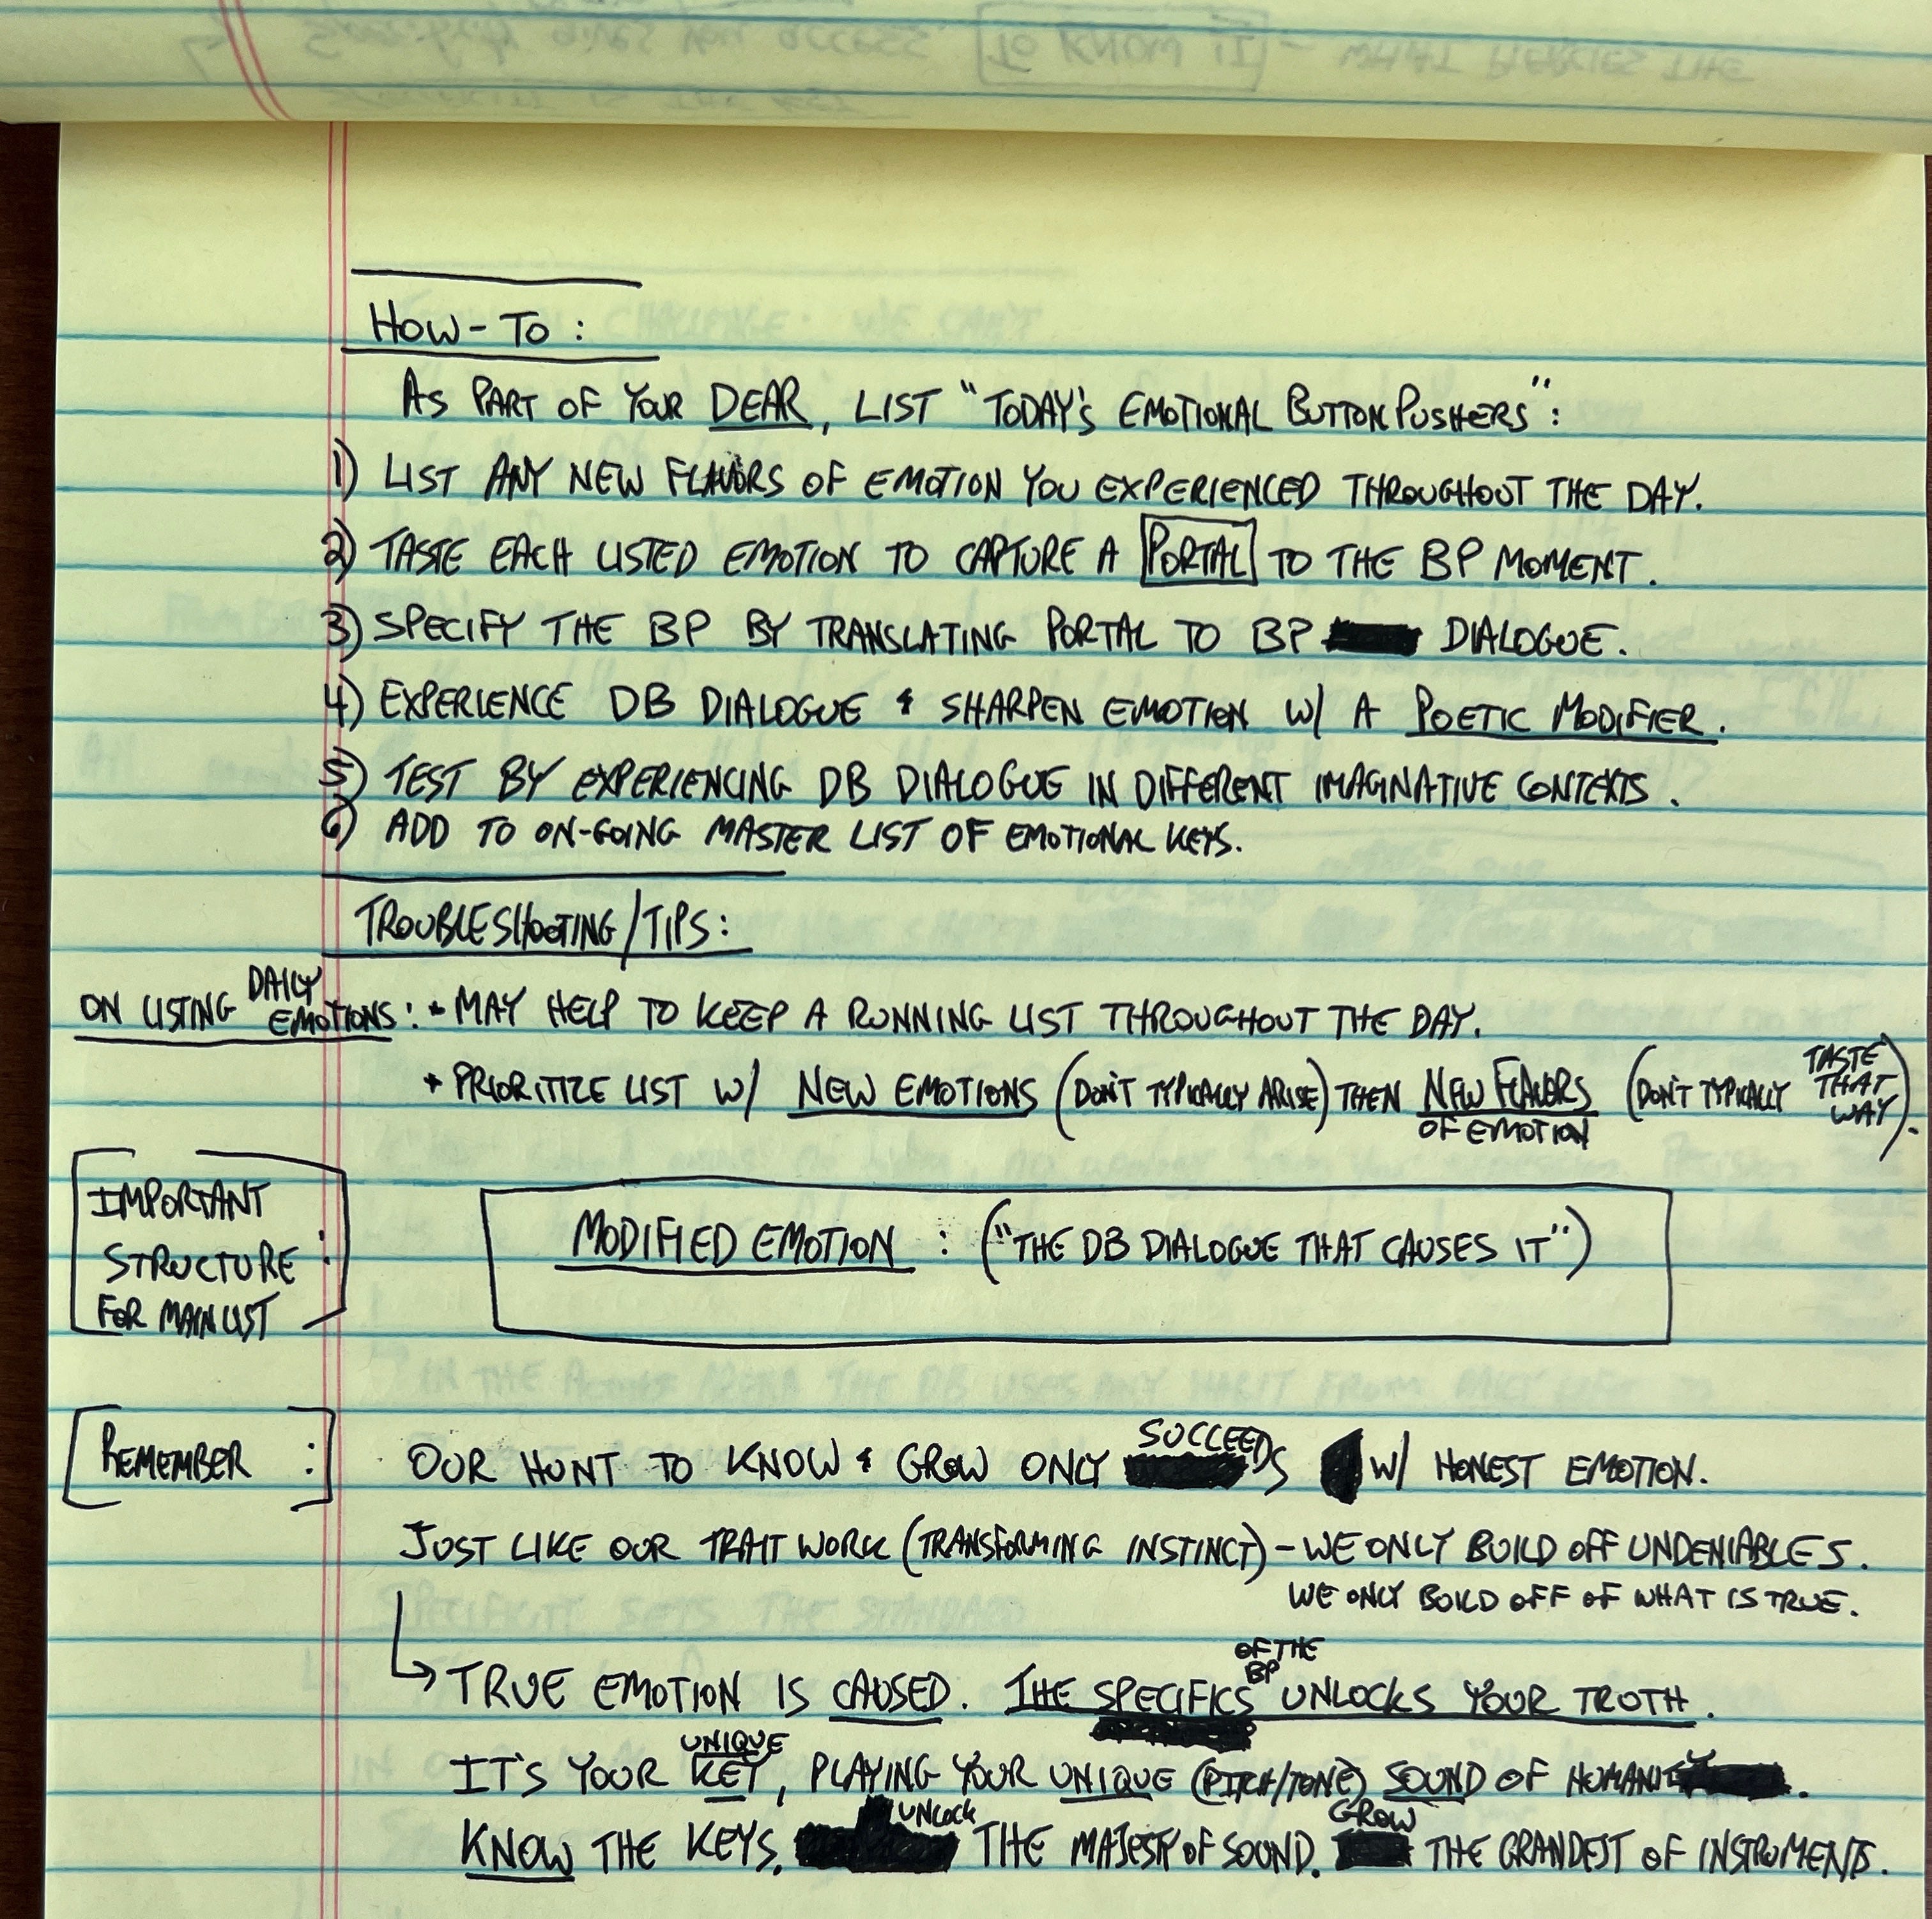 TO KNOW IT - WHAT
HOW-TO:
AS PART OF YOUR DEAR, LIST "TODAY'S EMOTIONAL BUTTON PUSHERS":
1) LIST ANY NEW FLAVORS OF EMOTION YOU EXPERIENCED THROUGHOUT THE DAY.
2) TASTE EACH LISTED EMOTION TO CAPTURE A PORTAL TO THE BP MOMENT.
3) SPECIFY THE BP BY TRANSLATING PORTAL TO BP DIALOGUE.
4) EXPERIENCE DB DIALOGUE & SHARPEN EMOTION W/ A POETIC MODIFIER.
5) TEST BY EXPERIENCING DB DIALOGUE IN DIFFERENT IMAGINATIVE CONTEXTS.
6) ADD TO ON-GOING MASTER LIST OF EMOTIONAL KEYS.
TROUBLESHOOTING/TIPS:
ON LISTING DAILY EMOTIONS: * MAY HELP TO KEEP A RUNNING LIST THROUGHOUT THE DAY.
* PRIORITIZE LIST W/ NEW EMOTIONS (DON'T TYPICALLY ARISE) THEN NEW FLAVORS OF EMOTION (DON'T TYPICALLY TASTE THAT WAY).
[IMPORTANT
STRUCTURE :
FOR MAIN LIST]
MODIFIED EMOTION : ("THE DB DIALOGUE THAT CAUSES IT")
[REMEMBER :] OUR HUNT TO KNOW & GROW ONLY SUCCEEDS W/ HONEST EMOTION.
JUST LIKE OUR TRAIT WORK (TRANSFORMING INSTINCT) - WE ONLY BUILD OFF UNDENIABLES.
WE ONLY BUILD OFF OF WHAT IS TRUE.
↳ TRUE EMOTION IS CAUSED. THE SPECIFICS OF THE BP UNLOCKS YOUR TRUTH.
IT'S YOUR UNIQUE KEY, PLAYING YOUR UNIQUE (PITCH/TONE) SOUND OF HUMANITY.
KNOW THE KEYS. UNLOCK THE MAJESTY OF SOUND. GROW THE GRANDEST OF INSTRUMENTS.